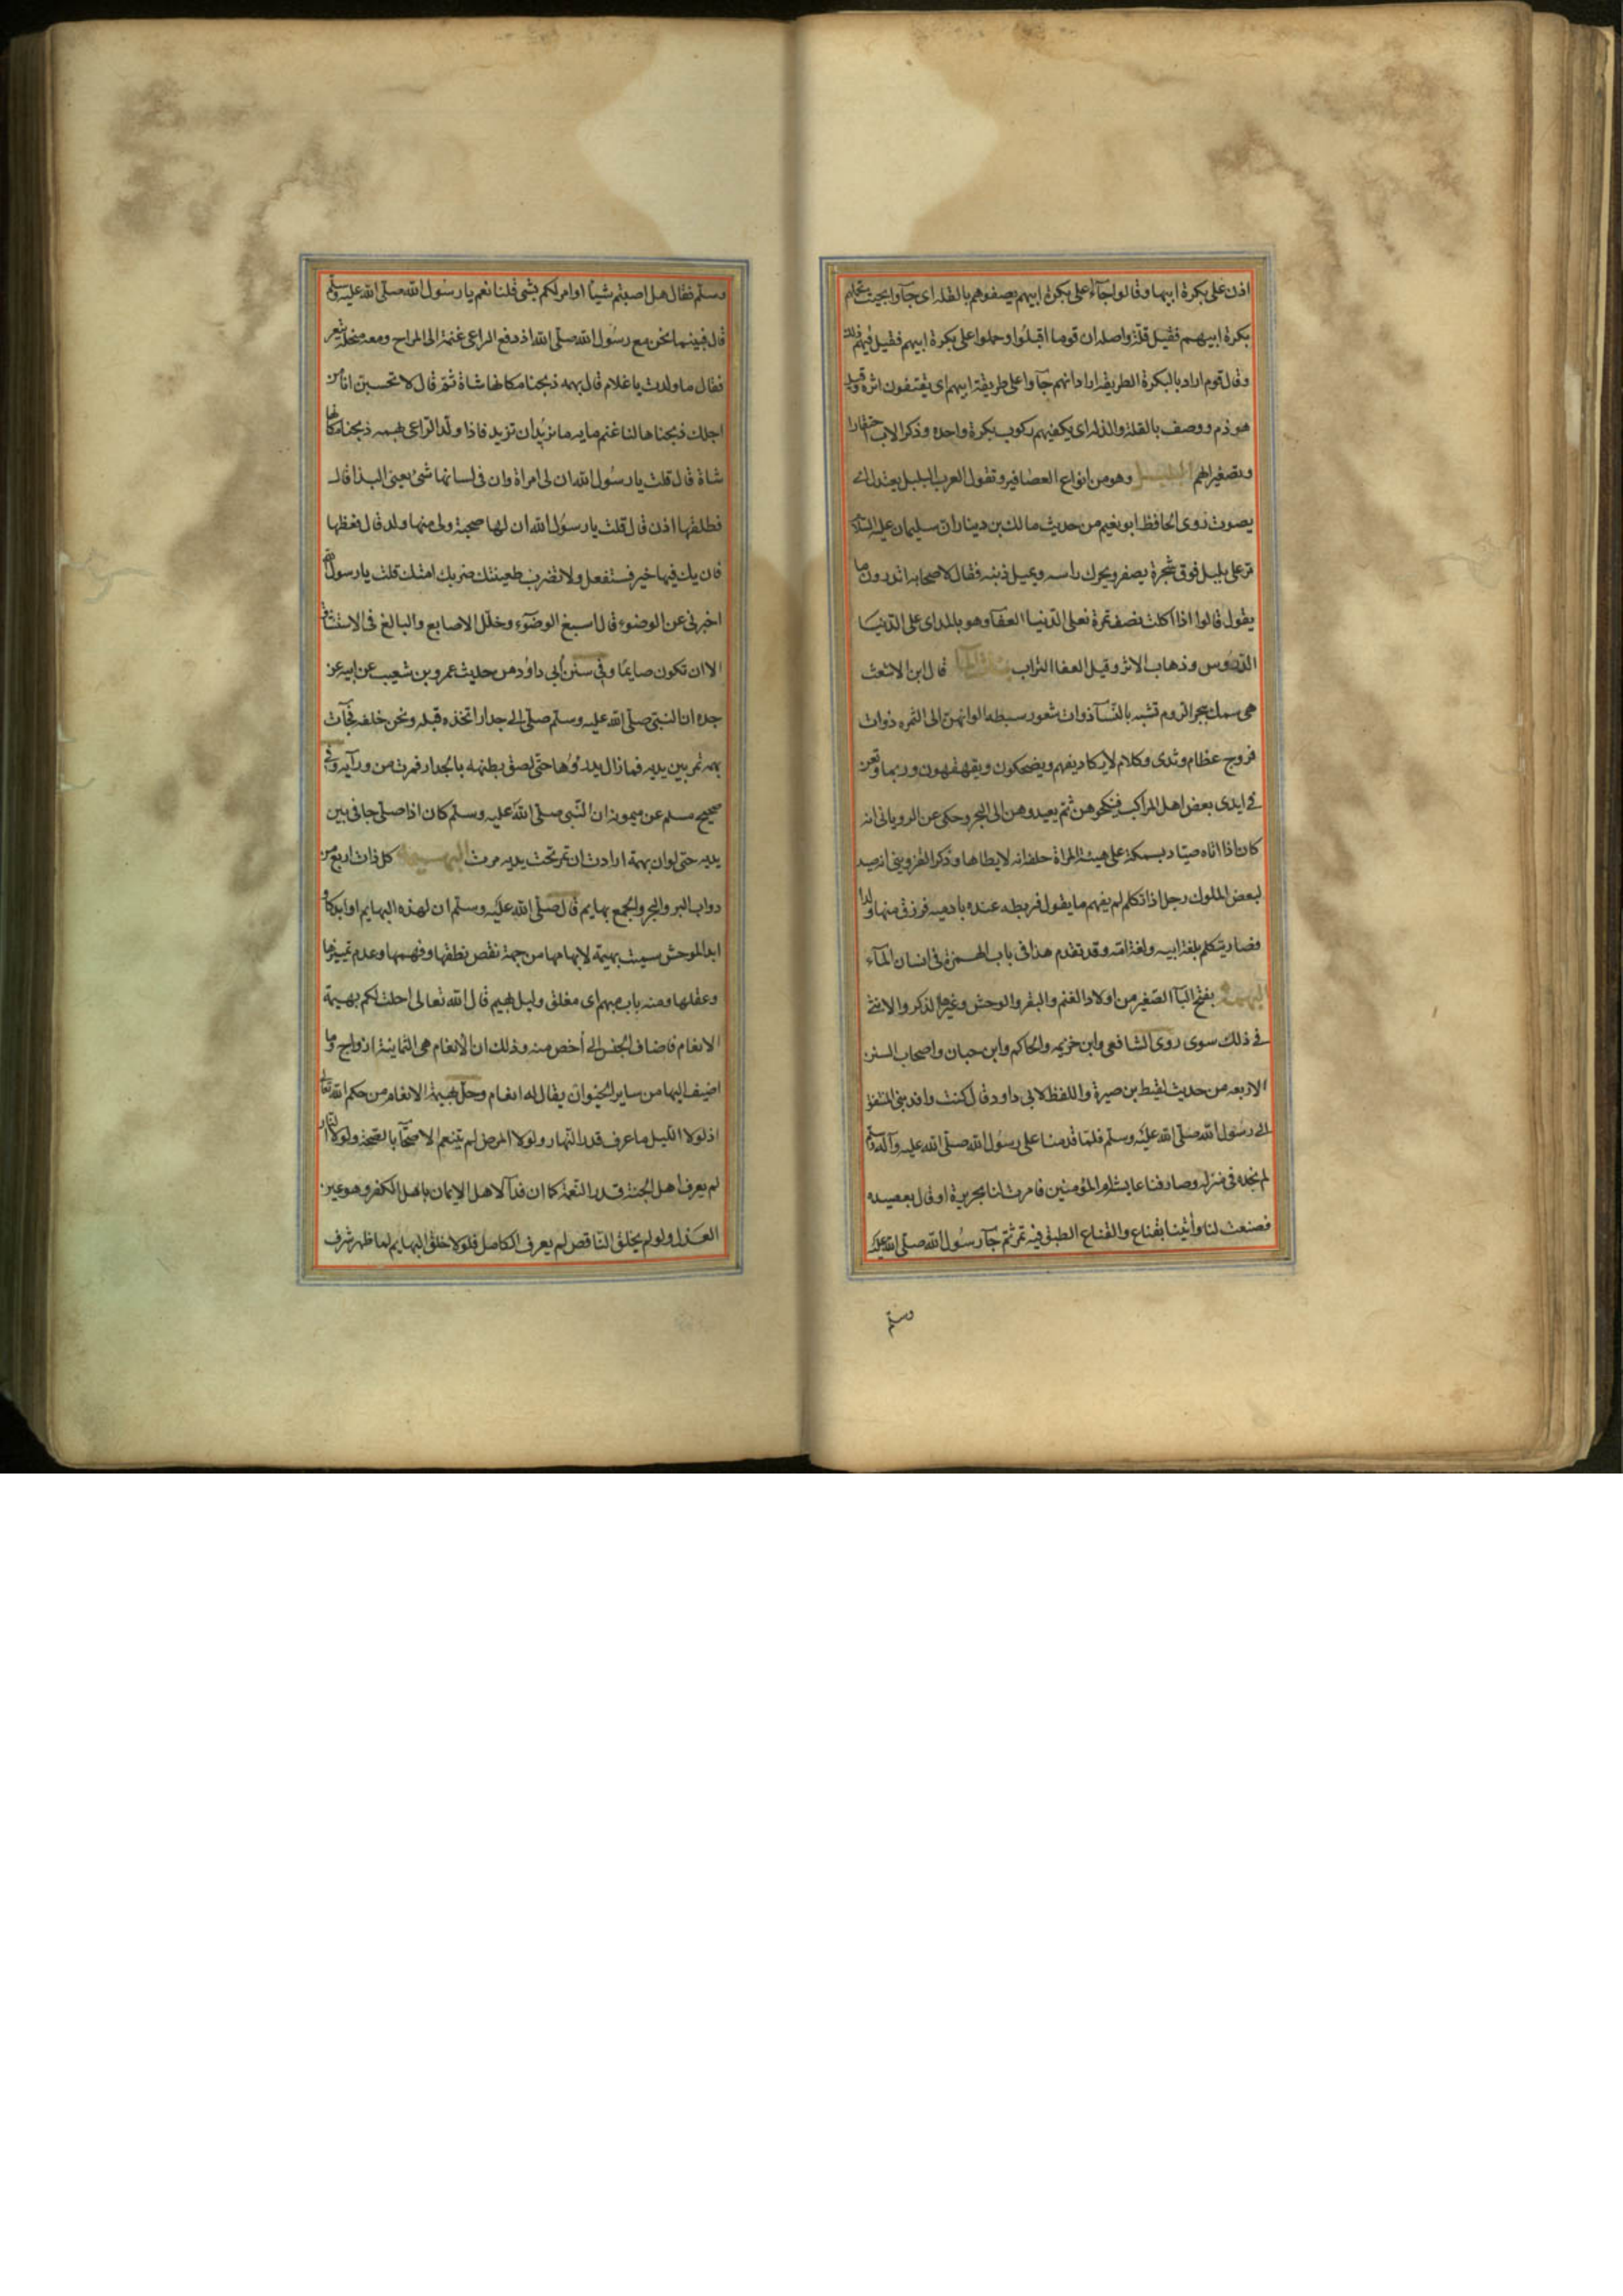 اذن على بكرة ابيها وقالوا جاؤا على بكرة ابيهم يصفوهم بالقله اى جآوا بحيث تحملهم
بكرة ابيهم فقيل قلة واصله ان قوما اقبلوا وحملوا على بكرة ابيهم فقيل فيهم ذلك
وقال قوم اراد بالبكرة الطريقه ارادانهم جآوا على طريقة ابيهم اى يقتفون اثره وقيل
هو ذم ووصف بالقلة والذله اى يكفيهم ركوب بكرة واحده وذكر الاب احتقارا
وتصغيرا لهم البلبل وهو من انواع العصافير وتقول العرب البلبل يعندل اى
يصوت روى الحافظ ابو نعيم من حديث مالك بن دينار ان سليمان عليه السلام
مر على بلبل فوق شجرة يصفر ويحرك راسه ويميل ذنبه فقال لاصحابه اتدرون ما
يقول قالوا اذا اكلت نصف تمرة فعلى الدنيا العفآ وهو بالمد اى على الدنيا
الدروس وذهاب الاثر وقيل العفا التراب بنات الماء قال ابن الاشعث
هى سمك ببحر الروم تشبه بالنسآ ذوات شعور سبطه الوانهن الى السمره ذوات
فروج عظام وثدى وكلام لا يكاد يفهم ويضحكون ويقهقهون وربما وقعن
فى ايدى بعض اهل المراكب فينكحوهن ثم يعيدوهن الى البحر وحكى عن الرويانى انه
كان اذا اتاه صياد بسمكة على هيئة المراة حلفه انه لا يطاها وذكر القزوينى انه صيد
لبعض الملوك رجل اذا تكلم لم يفهم ما يقول فربطه عنده بادميه فرزق منها ولدا
فصار يتكلم بلغة ابيه ولغة امه وقد تقدم هذا فى باب الهمزة فى انسان المآء
البهمة بفتح البآ الصغير من اولاد الغنم والبقر والوحش وغيرها الذكر والانثى
فى ذلك سوى روى الشافعى وابن خزيمه والحاكم وابن حبان واصحاب السنن
الاربعه من حديث لقيط بن صبرة واللفظ لابى داود قال كنت وافد بنى المنتفق
الى رسول الله صلى الله عليه وسلم فلما قدمنا على رسول الله صلى الله عليه وآله وسلم
لم نجده فى منزله وصادفنا عايشه ام المؤمنين فامرت لنا بحريرة او قال بعصيده
فصنعت لنا وأتينا بقناع والقناع الطبق فيه تمر ثم جآ رسول الله صلى الله عليه
وسلم
وسلم فقال هل اصبتم شيئا او امر لكم بشى قلنا نعم يا رسول الله صلى الله عليه وسلم
قال فبينما نحن مع رسول الله صلى الله اذ دفع الراعى غنمه الى المراح ومعه سخلة تيعر
فقال ما ولدت يا غلام قال بهمه ذبحنا مكانها شاة ثم قال لا تحسبن انا من
اجلك ذبحناها لنا غنم مايه ما نريد ان تزيد فاذا ولد الراعى بهمه ذبحنا مكانها
شاة قال قلت يا رسول الله ان لى امراة وان فى لسانها شئ يعنى البذا قال
فطلقها اذن قال قلت يا رسول الله ان لها صحبة ولى منها ولد قال فعظها
فان يك فيها خير فستفعل ولا تضرب ظعينتك ضربك امتك قلت يا رسول الله
اخبرنى عن الوضوء قال اسبغ الوضوء وخلل الاصابع والبالغ فى الاستنشاق
الا ان تكون صايما وفى سنن أبى داود من حديث عمرو بن شعيب عن ابيه عن
جده ان النبى صلى الله عليه وسلم صلى الى جدار اتخذه قبله ونحن خلفه فجآت
بهمه تمر بين يديه فما زال يدرؤها حتى لصق بطنه بالجدار فمرت من ورآيه وفى
صحيح مسلم عن ميمونه ان النبى صلى الله عليه وسلم كان اذا صلى جافى بين
يديه حتى لو ان بهمة ارادت ان تمر تحت يديه مرت البهيمة كل ذات اربع من
دواب البر والبحر والجمع بهايم قال صلى الله عليه وسلم ان لهذه البهايم اوابد كاو
ابد الوحش سميت بهيمة لابهامها من جهة نقص نطقها وفهمها وعدم تمييزها
وعقلها ومنه باب مبهم اى مغلق وليل بهيم قال الله تعالى احلت لكم بهيمة
الانعام فاضاف الجنس الى أخص منه وذلك ان الانعام هى الثمانية ازواج وما
اضيف اليها من ساير الحيوان يقال له انعام وحل بهيمة الانعام من حكم الله تعالى
اذ لولا الليل ما عرف قدر النهار ولولا المرض لم يتنعم الاصحآ بالصحة ولولا النار
لم يعرف اهل الجنة قدر النعمة كما ان فدآ لاهل الايمان باهل الكفر وهو عين
العدل ولو لم يخلق الناقص لم يعرف الكامل فلولا خلق البهايم لما ظهر شرف